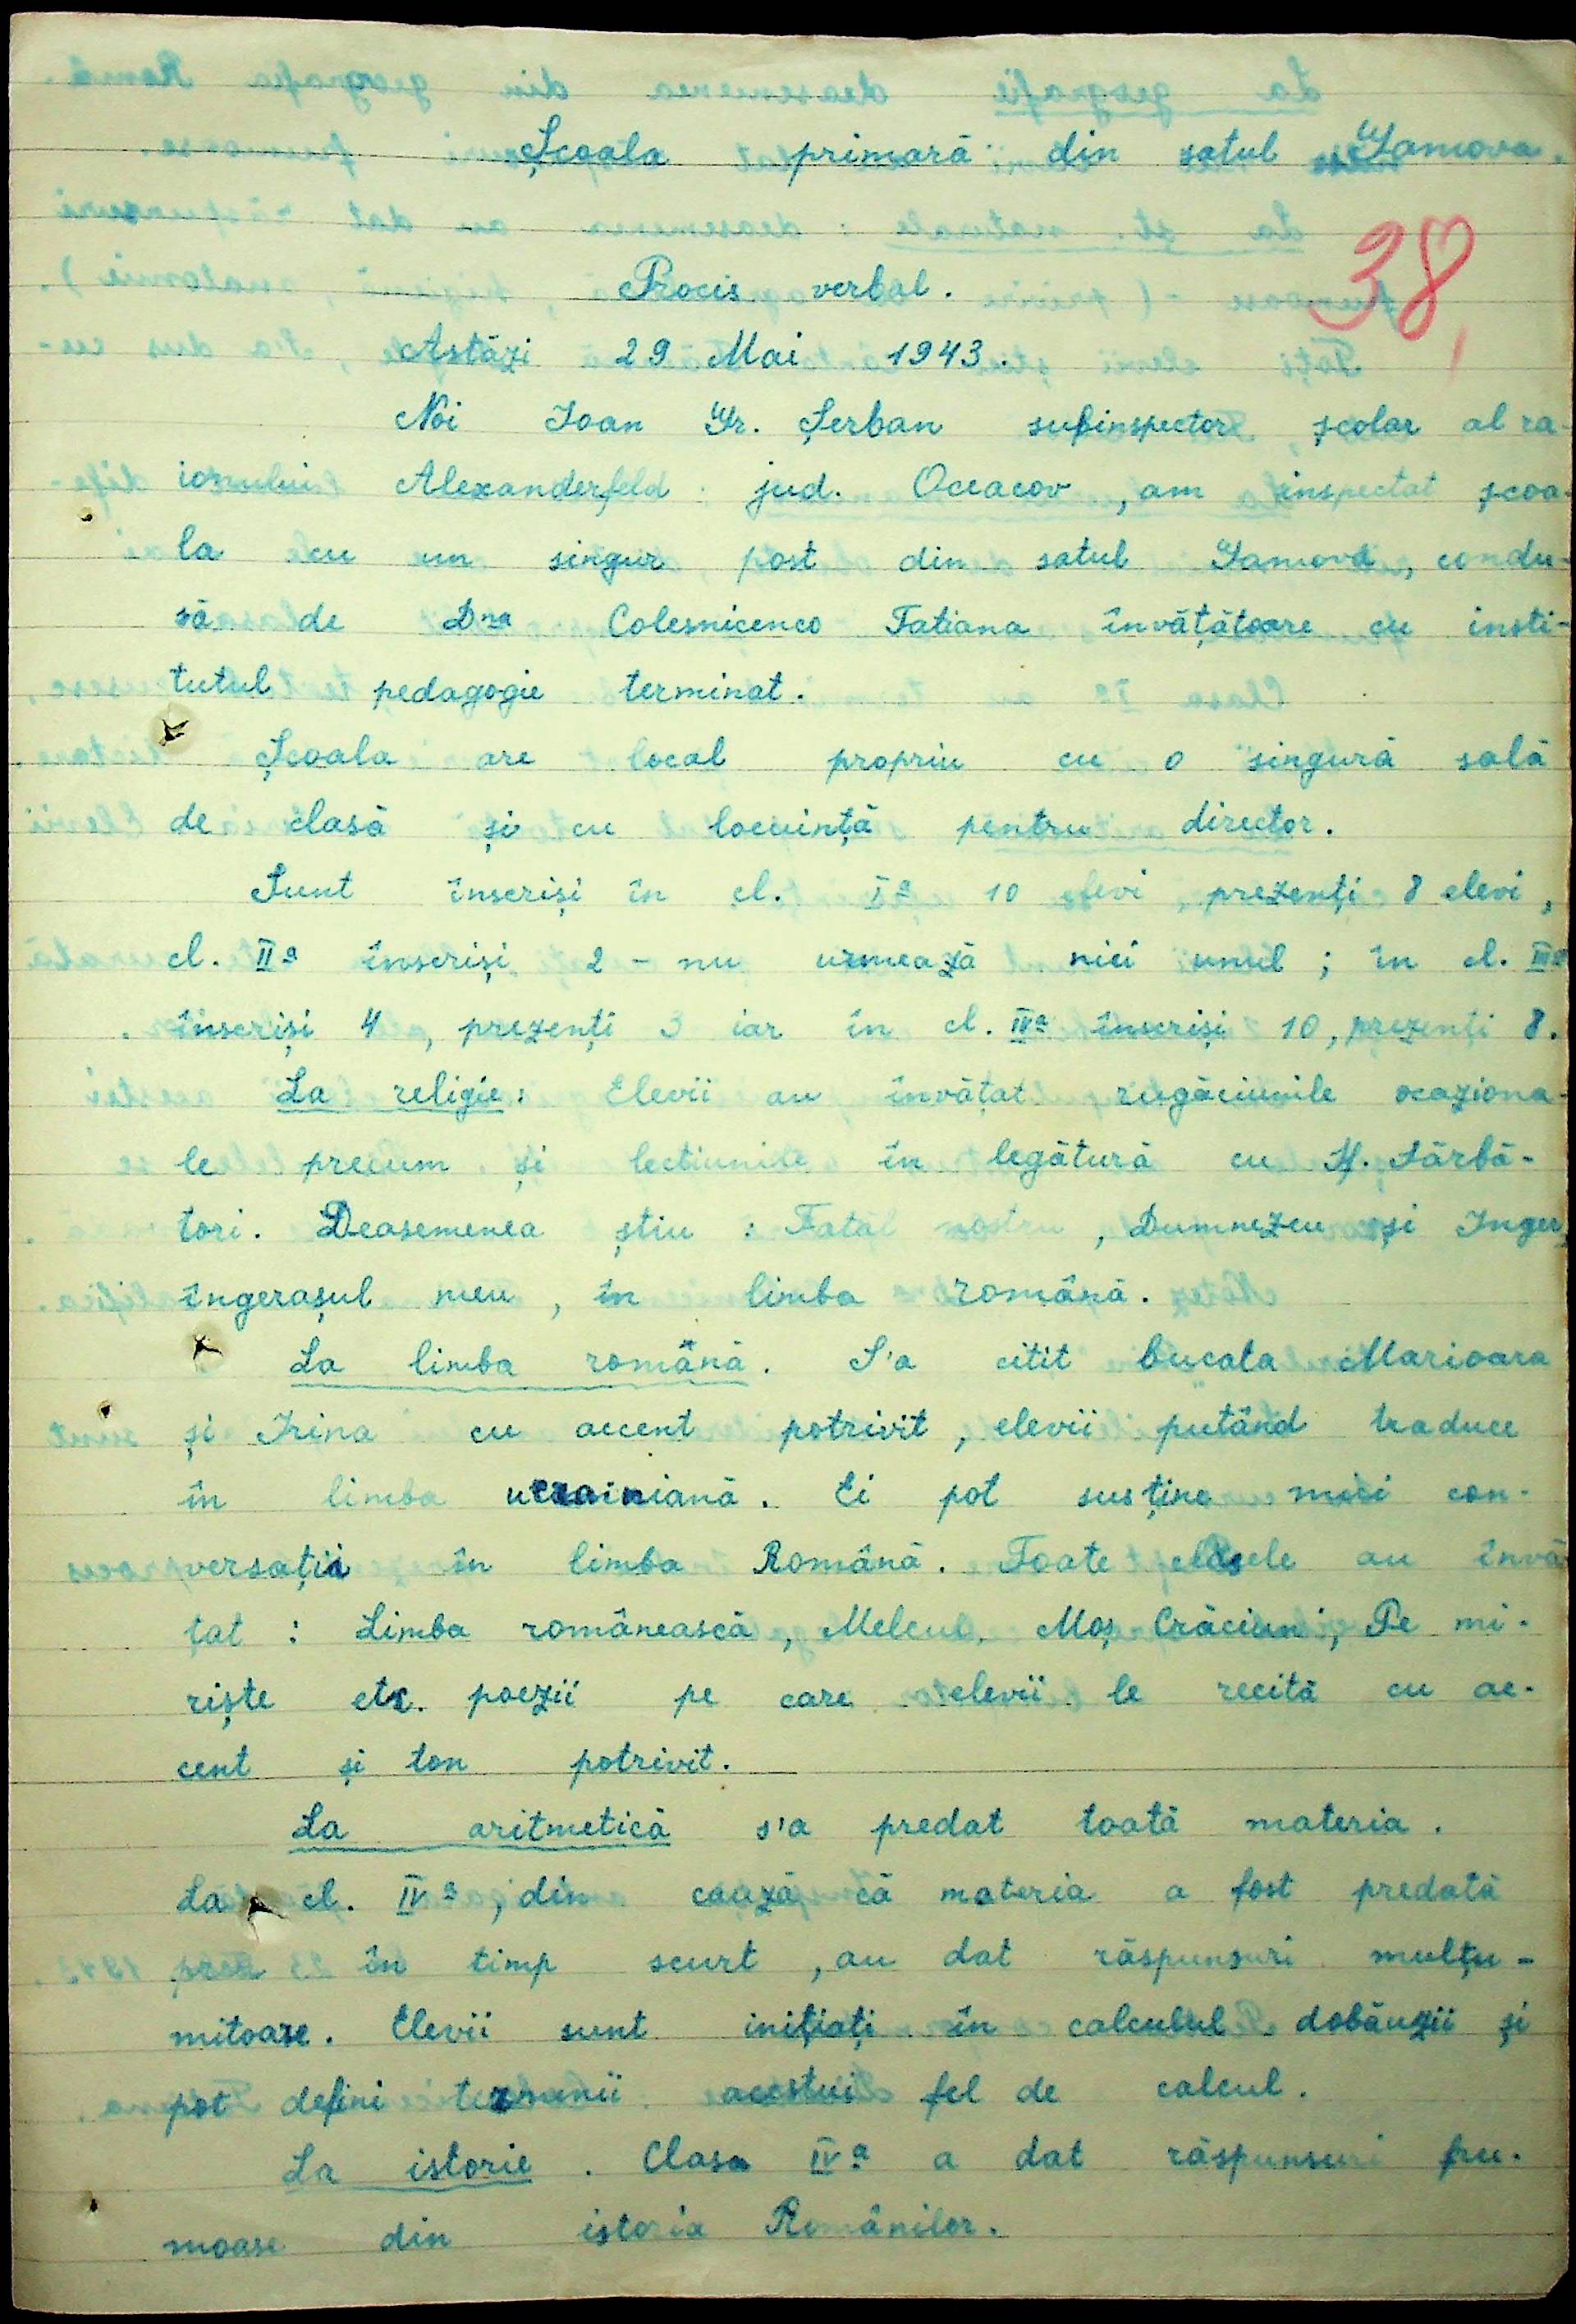 Școala primară din satul Gamova.
38
Proces verbal.
Astăzi 29 Mai 1943.
Noi Ioan Gr. Șerban subinspector școlar al ra-
ionului Alexanderfeld jud. Oceacov, am inspectat școa-
la cu un singur post din satul Gamova, condu-
să de Dna Colesnicenco Tatiana învățătoare cu insti-
tutul pedagogic terminat.
Școala are local propriu cu o singură sală
de clasă și cu locuință pentru director.
Sunt înscriși în cl. Iª 10 elevi, prezenți 8 elevi,
cl. IIª înscriși 2 - nu urmează nici unul; în cl. IIIª
înscriși 4, prezenți 3 iar în cl. IVª înscriși 10, prezenți 8.
La religie: Elevii au învățat rugăciunile ocaziona-
le precum și lecțiunile în legătură cu Sf. Sărbă-
tori. Deasemenea știu: Tatăl nostru, Dumnezeu și Inger,
îngerașul meu, în limba română.
La limba română. S'a citit bucata Marioara
și Irina cu accent potrivit, elevii putând traduce
în limba ucrainiană. Ei pot susține mici con-
versații în limba Română. Toate clasele au învă-
țat: Limba românească, Melcul, Moș Crăciun, Pe mi-
riște etc. poezii pe care elevii le recită cu ac-
cent și ton potrivit.
La aritmetică s'a predat toată materia.
La cl. IVª, din cauză că materia a fost predată
prea în timp scurt, au dat răspunsuri mulțu-
mitoare. Elevii sunt inițiați în calculul dobânzii și
pot defini termenii acestui fel de calcul.
La istorie. Clasa IVª a dat răspunsuri fru-
moase din istoria Românilor.